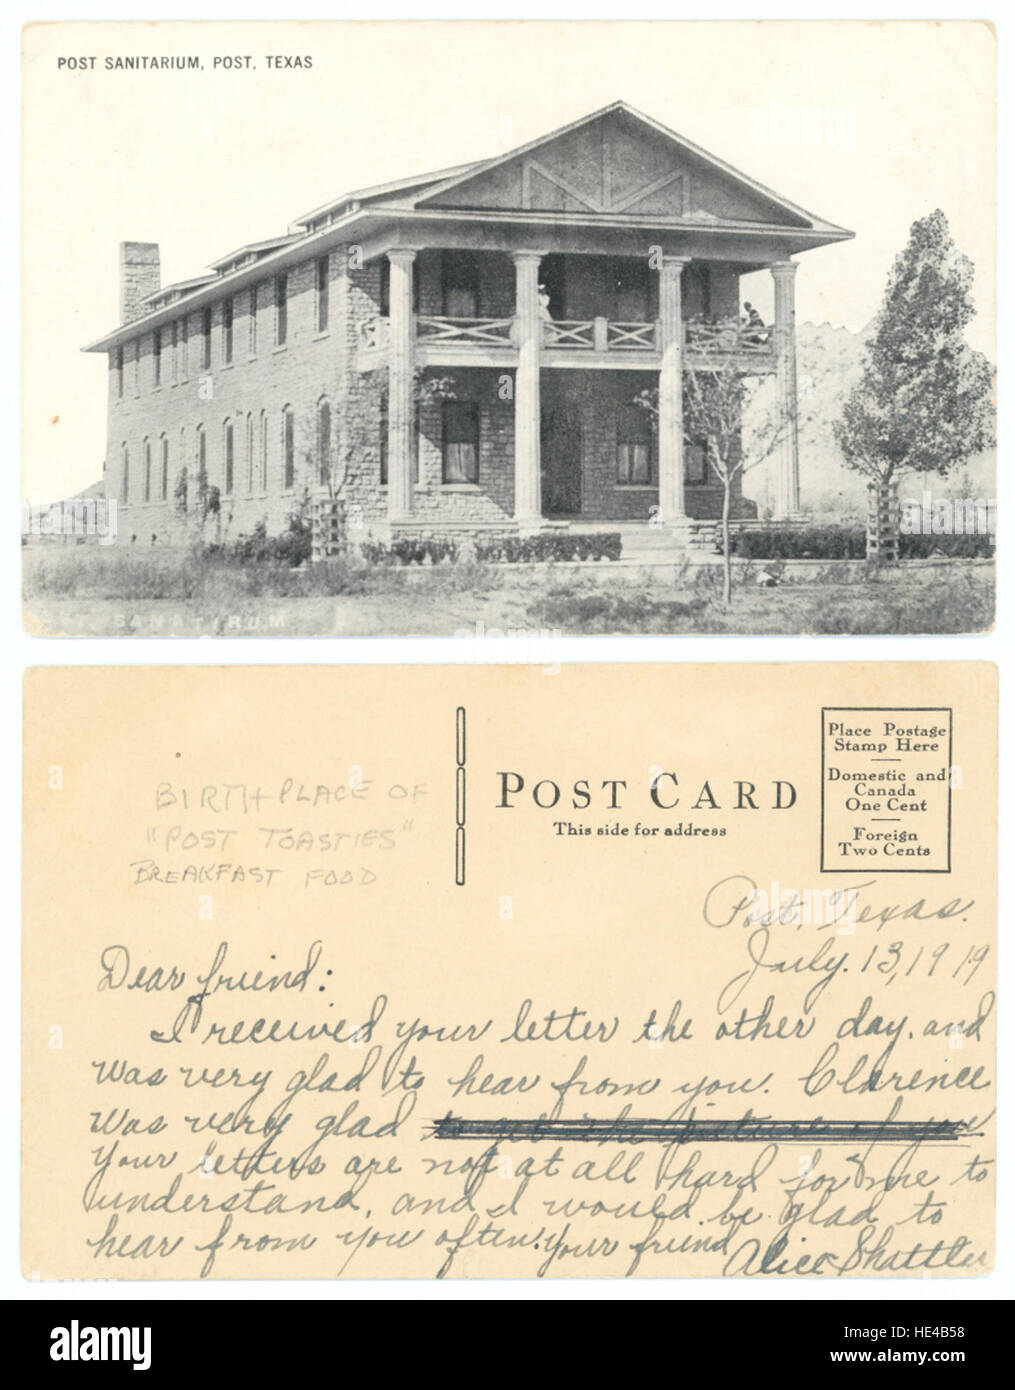 POST SANITARIUM, POST, TEXAS
SANATIRUM
BIRTHPLACE OF
"POST TOASTIES"
BREAKFAST FOOD
POST CARD
This side for address
Place Postage
Stamp Here
Domestic and
Canada
One Cent
Foreign
Two Cents
Post, Texas.
July. 13, 1919
Dear friend:
I received your letter the other day. and
was very glad to hear from you. Clarence
was very glad to get the picture of you
Your letters are not at all hard for me to
understand, and I would be glad to
hear from you often. Your friend
Alice Shattler
alamy
Image ID: HE4B58
www.alamy.com